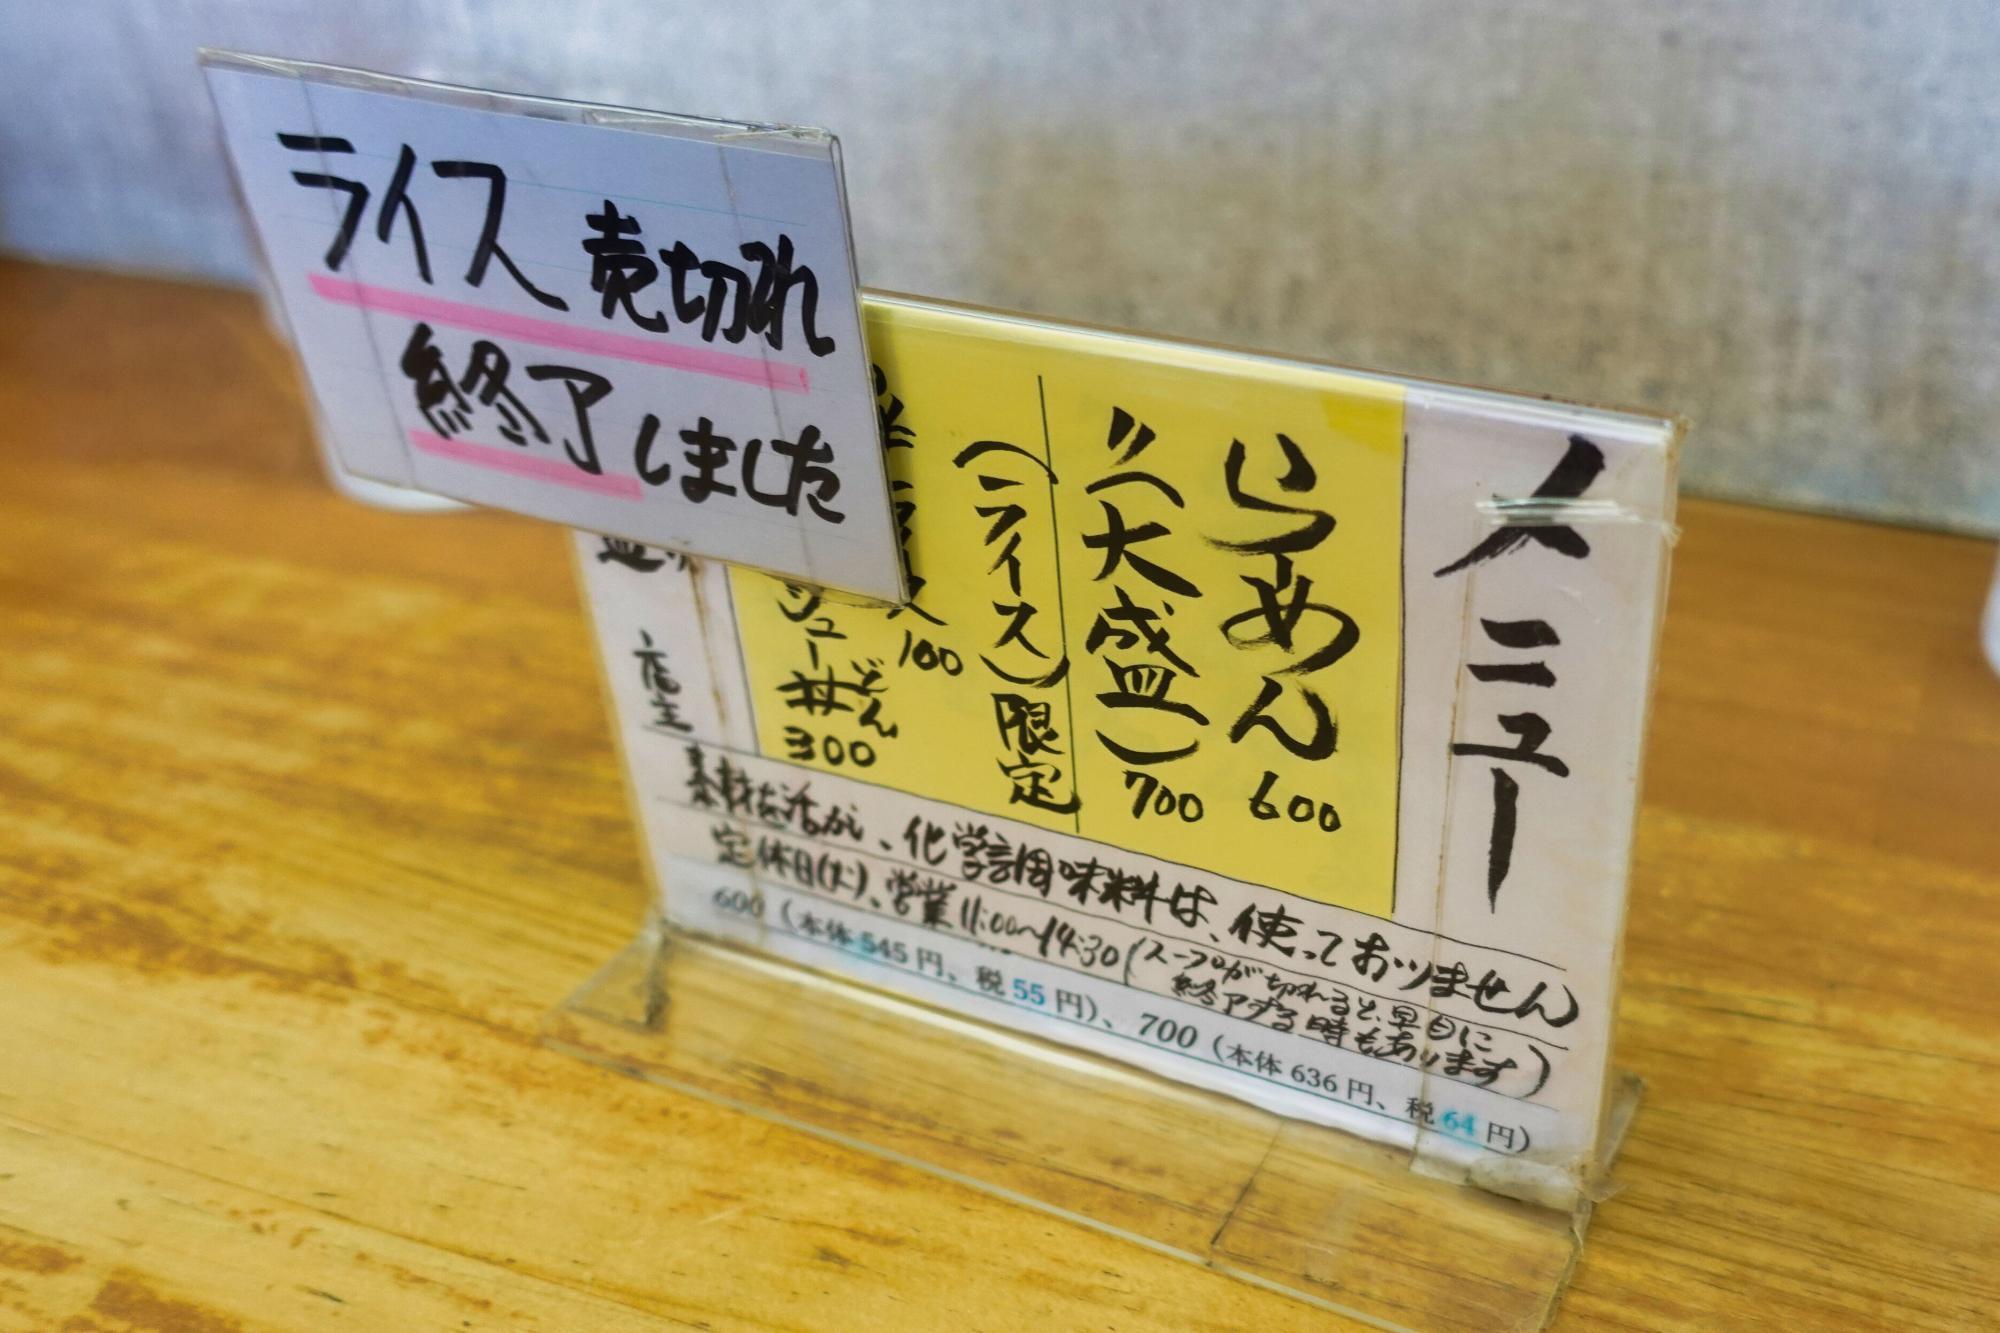 ライス 売切れ
終了しました
メニュー
らーめん 600
〃(大盛) 700
(ライス)限定
ライス 100
シュー丼 300
どん
店主
素材を活かし、化学調味料は、使っておりません
定休日(火)、営業11:00~14:30(スープが切れると、早目に
終了する時もあります)
600(本体545円、税55円)、700(本体636円、税64円)